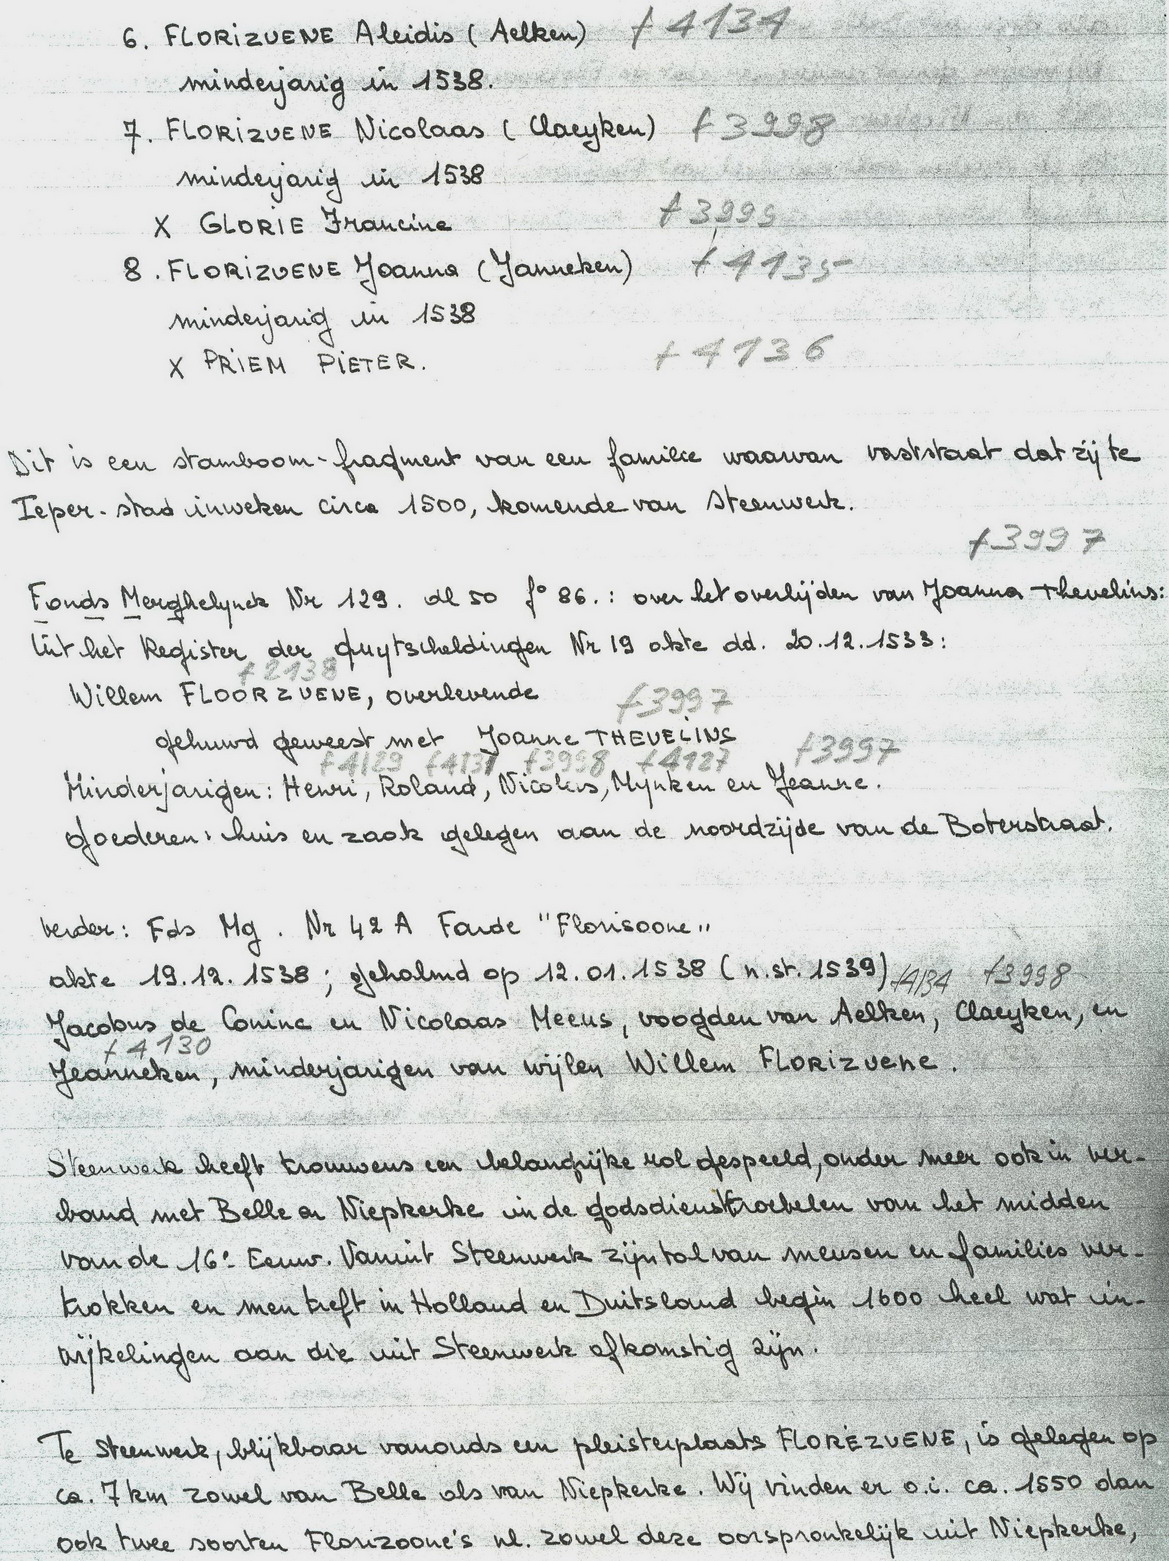 6. FLORIZUENE Aleidis (Aelken) f 4134
minderjarig in 1538.
7. FLORIZUENE Nicolaas (Claeyken) f 3998
minderjarig in 1538
X GLORIE Francine f 3999
8. FLORIZUENE Joanna (Janneken) f 4135
minderjarig in 1538
X PRIEM PIETER. f 4136
Dit is een stamboom-fragment van een familie waarvan vaststaat dat zij te
Ieper-stad inweken circa 1500, komende van Steenwerk.
f 3997
Fonds Merghelynck Nr 129. dl 50 f° 86.: over het overlijden van Joanna Thevelins:
Uit het Register der quytscheldingen Nr 19 akte dd. 20.12.1533:
f 2138
Willem FLOORZUENE, overlevende f 3997
gehuwd geweest met Joanne THEVELINS
f 4129 f 4131 f 3998 f 4127 f 3997
Minderjarigen: Henri, Roland, Nicolas, Mynken en Jeanne.
goederen: huis en zaak gelegen aan de noordzijde van de Boterstraat.
verder: Fds Mg. Nr 42 A Farde "Florisoone"
akte 19.12.1538; gehalmd op 12.01.1538 (n.st. 1539) f 4134 f 3998
Jacobus de Coninc en Nicolaas Meeus, voogden van Aelken, Claeyken, en
f 4130
Jeanneken, minderjarigen van wijlen Willem FLORIZUENE.
Steenwerk heeft trouwens een belangrijke rol gespeeld, onder meer ook in ver-
band met Belle en Niepkerke in de godsdiensttroebelen van het midden
van de 16e Eeuw. Vanuit Steenwerk zijn tal van mensen en families ver-
trokken en men treft in Holland en Duitsland begin 1600 heel wat in-
wijkelingen aan die uit Steenwerk afkomstig zijn.
Te Steenwerk, blijkbaar vanouds een pleisterplaats FLOREZUENE, is gelegen op
ca. 7 km zowel van Belle als van Niepkerke. Wij vinden er o.i. ca. 1550 dan
ook twee soorten Florizoone's nl. zowel deze oorspronkelijk uit Niepkerke,